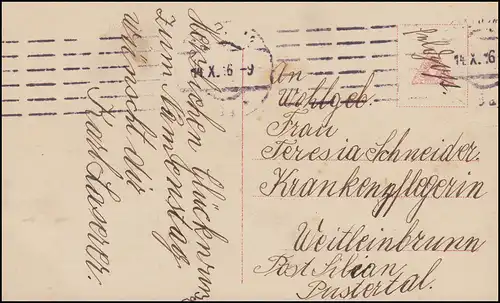 Herzlichen Glückwunsch
zum Namenstag
wünscht die
Karl Laserer.
Feldpost
14.X.16-9
14.X.16
An
Wohlgeb.
Frau
Teresia Schneider.
Krankenpflegerin
Weitleinbrunn
Post Silian
Pustertal.